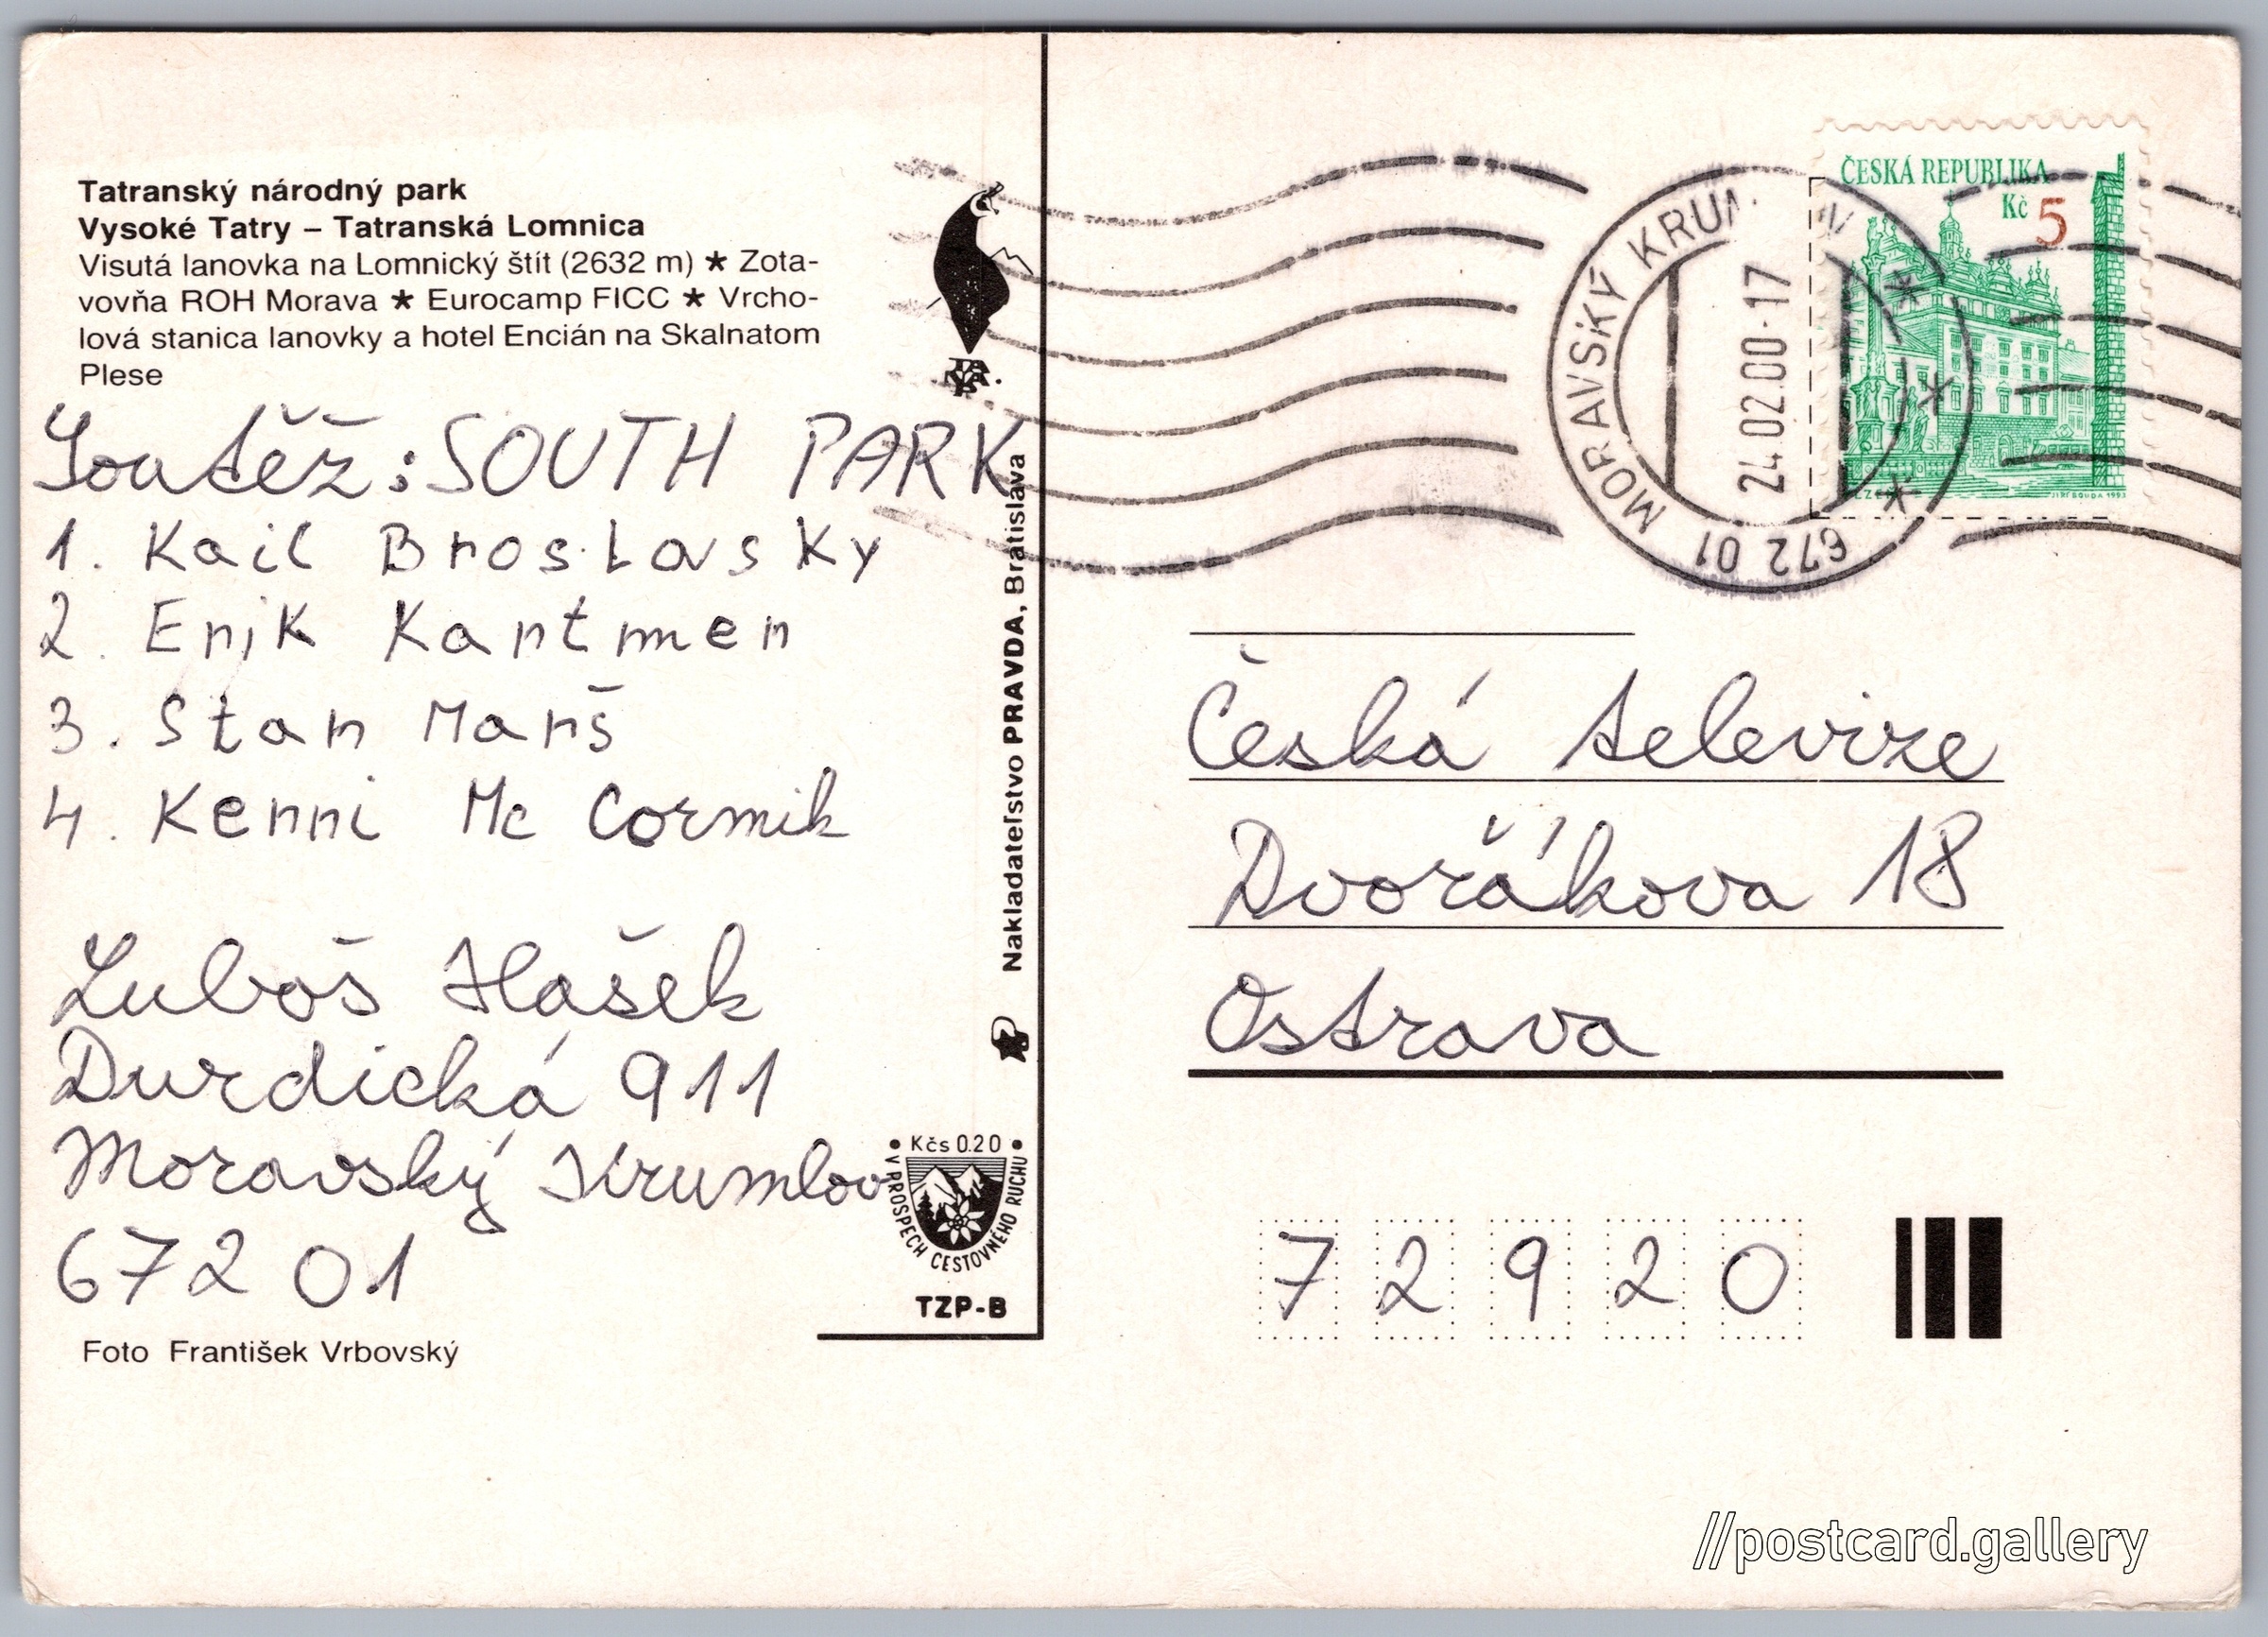 Tatranský národný park
Vysoké Tatry – Tatranská Lomnica
Visutá lanovka na Lomnický štít (2632 m) ★ Zota-
vovňa ROH Morava ★ Eurocamp FICC ★ Vrcho-
lová stanica lanovky a hotel Encián na Skalnatom
Plese
Soutěž: SOUTH PARK
1. Kail Broslovsky
2. Erik Kartmen
3. Stan Marš
4. Kenni Mc Cormik
Luboš Hašek
Durdická 911
Moravský Krumlov
672 01
Foto František Vrbovský
Nakladateľstvo PRAVDA, Bratislava
• Kčs 0.20 •
V PROSPECH CESTOVNÉHO RUCHU
TZP-B
ČESKÁ REPUBLIKA
Kč 5
JIŘÍ BOUDA 1993
MORAVSKÝ KRUM V
24.02.00-17
672 01
Česká televize
Dvořákova 18
Ostrava
72920
//postcard.gallery